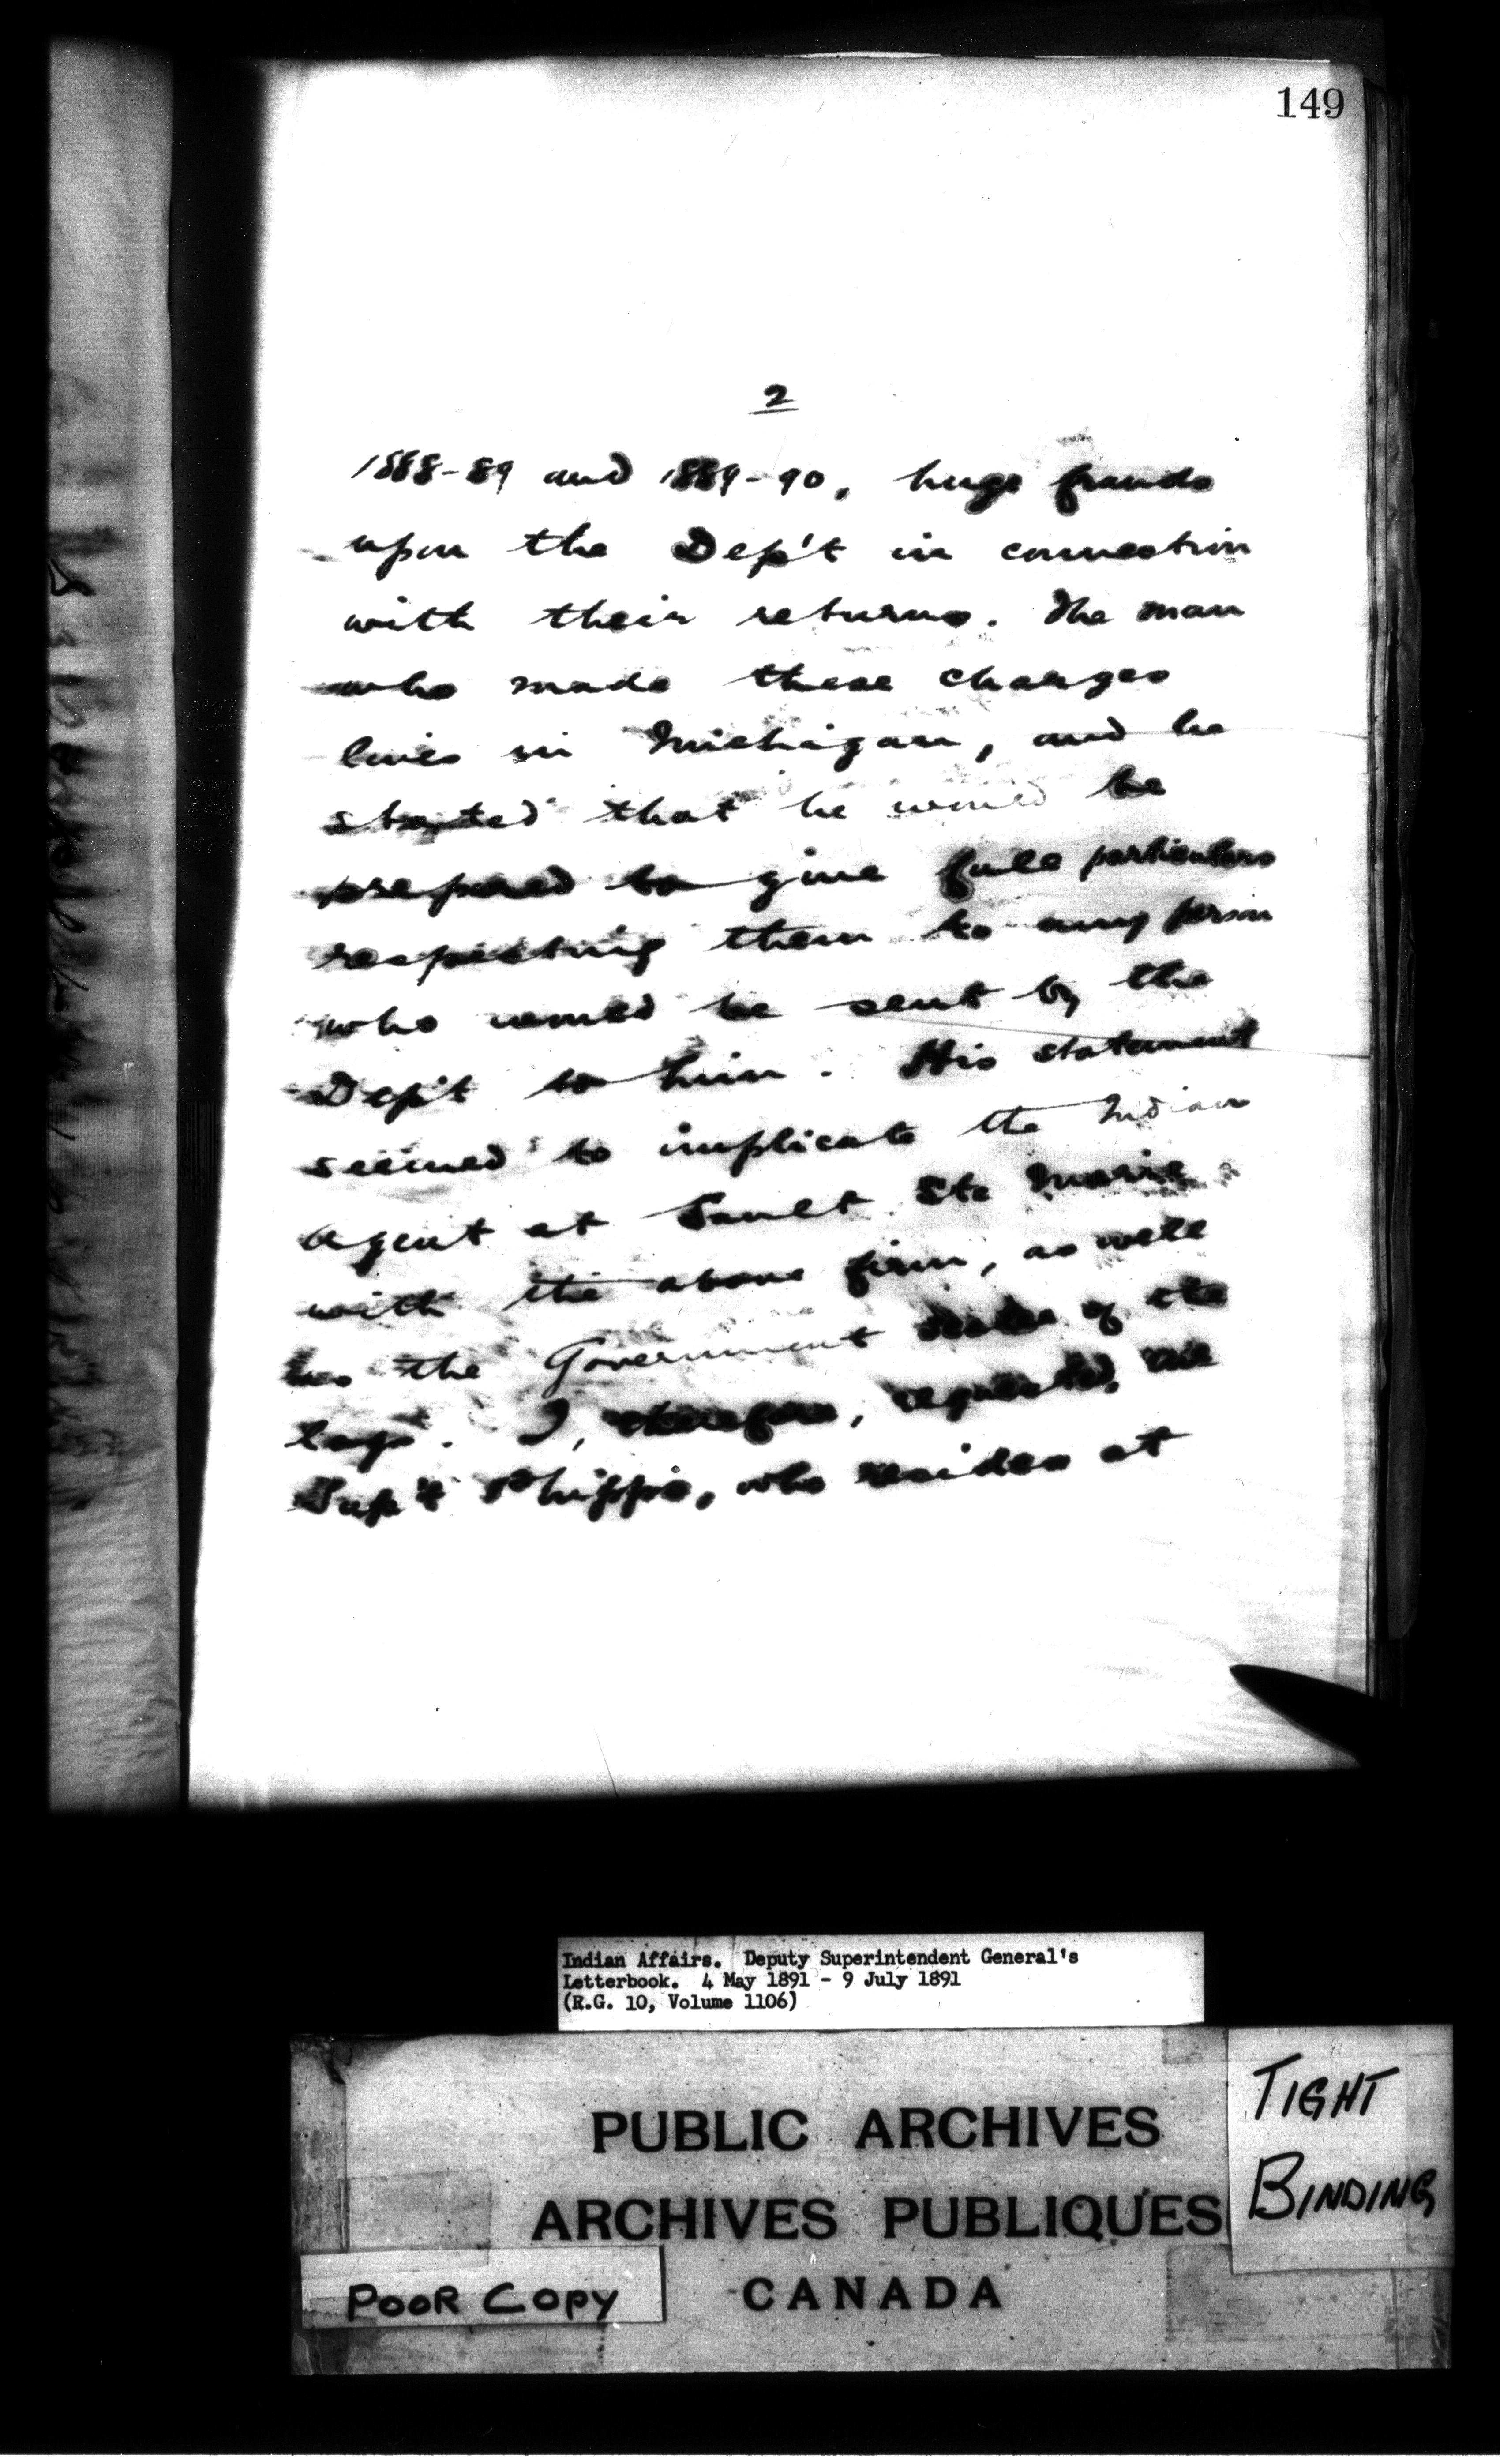 149
2
1888-89 and 1889-90, huge frauds
upon the Dep't in connection
with their returns. The man
who made these charges
lives in Michigan, and he
stated that he would be
prepared to give full particulars
respecting them to any person
who would be sent by the
Dep't to him. His statement
seemed to implicate the Indian
Agent at Sault Ste Marie
with the above firm, as well
as the Government scaler of the
logs. I, therefore, requested, the
Sup't Phipps, who resides at
Indian Affairs. Deputy Superintendent General's
Letterbook. 4 May 1891 - 9 July 1891
(R.G. 10, Volume 1106)
TIGHT
BINDING
PUBLIC ARCHIVES
ARCHIVES PUBLIQUES
CANADA
POOR COPY